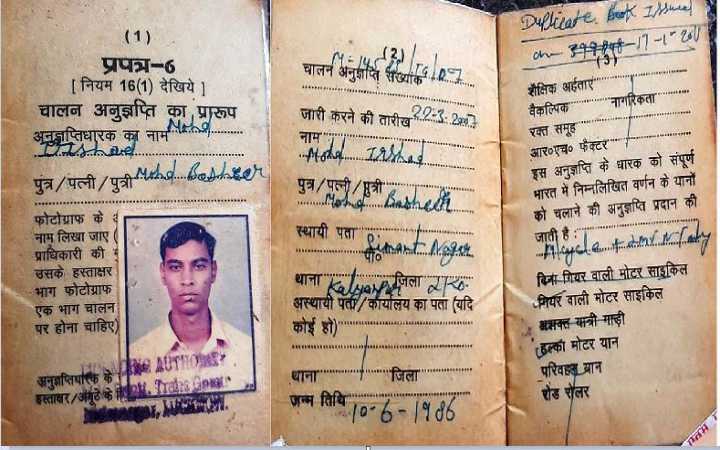 (1)
प्रपत्र-6
[ नियम 16(1) देखिये ]
चालन अनुज्ञप्ति का प्रारूप
अनुज्ञप्तिधारक का नाम Mohd
Irshad
पुत्र/पत्नी/पुत्री Mohd Basheer
फोटोग्राफ के
नाम लिखा जाए (
प्राधिकारी की
उसके हस्ताक्षर
भाग फोटोग्राफ
एक भाग चालन
पर होना चाहिए)
AUTHORITY
अनुज्ञप्तिधारक के
हस्ताक्षर/अंगूठे के
(2)
चालन अनुज्ञप्ति संख्यांक
जारी करने की तारीख 22-3-
नाम
Mohd Irshad
पुत्र/पत्नी/पुत्री
Mohd Basheer
स्थायी पता
Simant Nagar
पो०
थाना Kalyanpur जिला LKO
अस्थायी पता/कार्यालय का पता (यदि
कोई हो)
थाना जिला
जन्म तिथि
10-6-1986
Duplicate Book Issued
on 17-1-
(3)
शैक्षिक अर्हताएं
वैकल्पिक नागरिकता
रक्त समूह
आर०एच० फैक्टर
इस अनुज्ञप्ति के धारक को संपूर्ण
भारत में निम्नलिखित वर्णन के यानों
को चलाने की अनुज्ञप्ति प्रदान की
जाती है :
M/cycle + LMV NT only
बिना गियर वाली मोटर साइकिल
गियर वाली मोटर साइकिल
अशक्त यात्री गाड़ी
हल्का मोटर यान
परिवहन यान
रोड रोलर